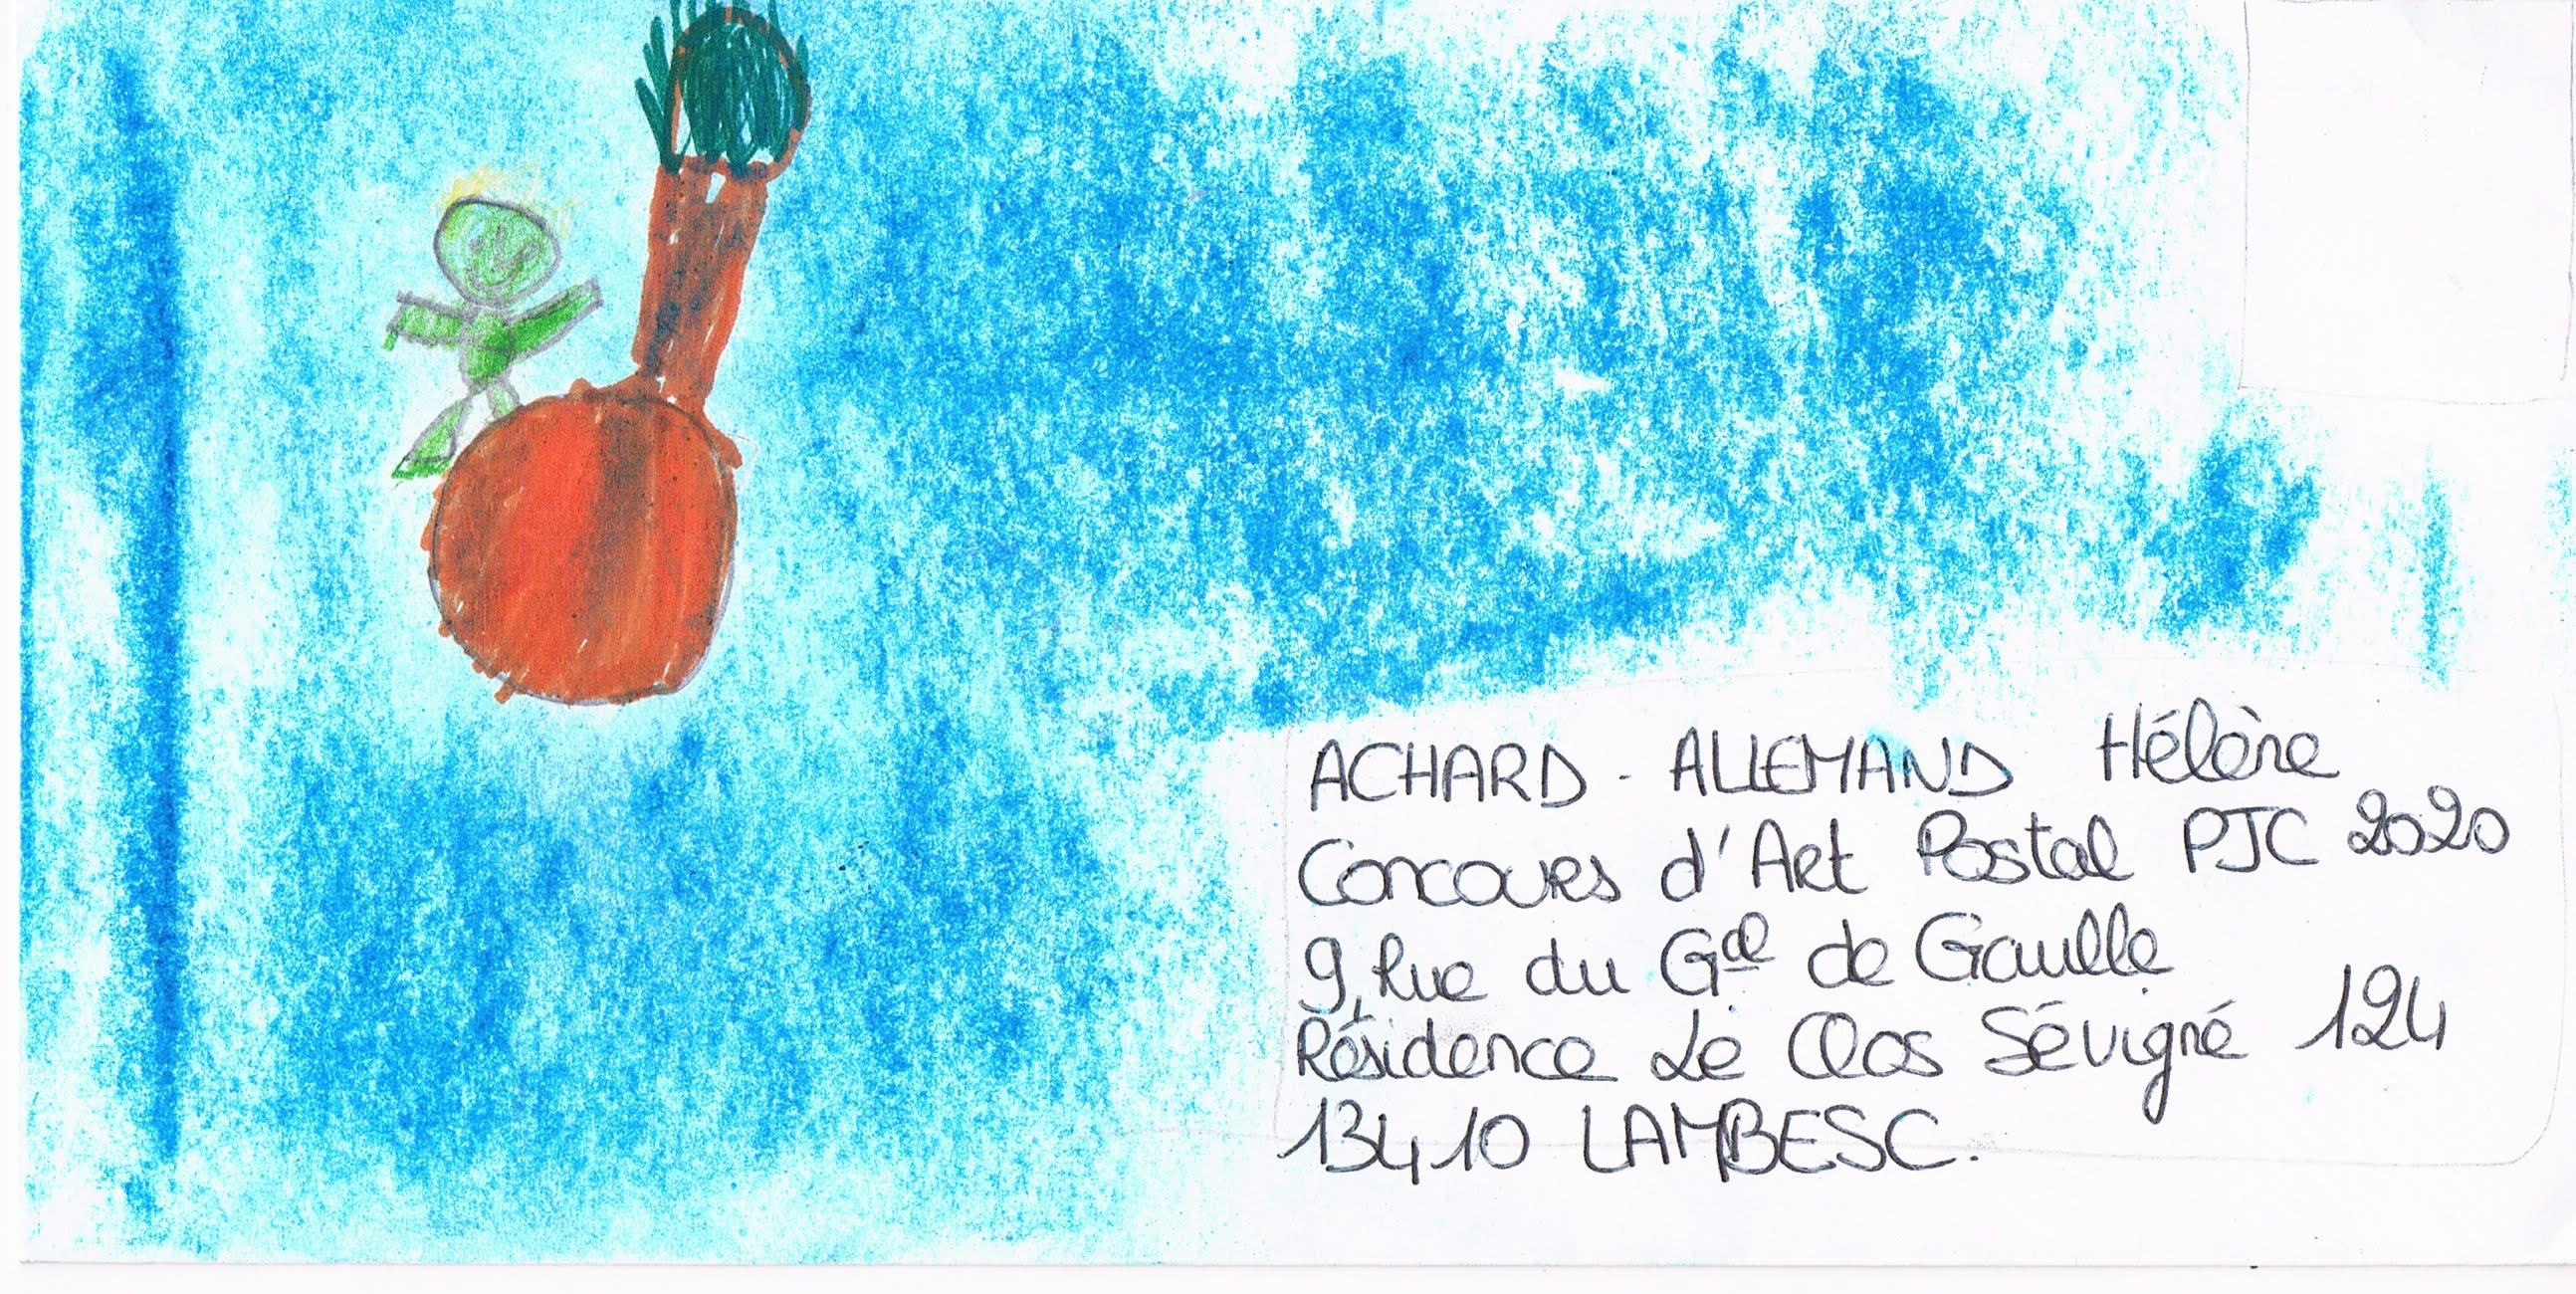 ACHARD - ALLEMAND Hélène
Concours d'Art Postal PJC 2020
9, Rue du Gal de Gaulle
Résidence Le Clos Sévigné 124
13410 LAMBESC.